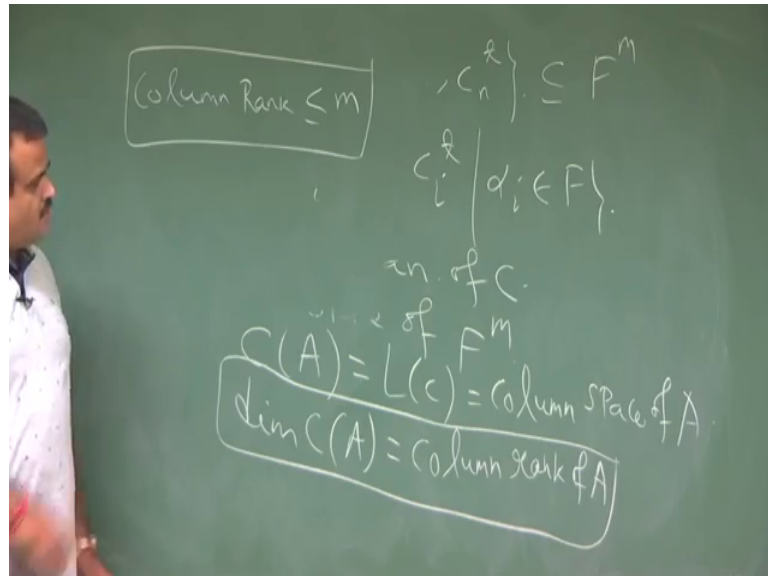 Column Rank ≤ m
, c_n^t } ⊆ F^m
c_i^t | α_i ∈ F }.
an. of C.
of F^m
C(A) = L(C) = Column Space of A.
dim C(A) = Column rank of A